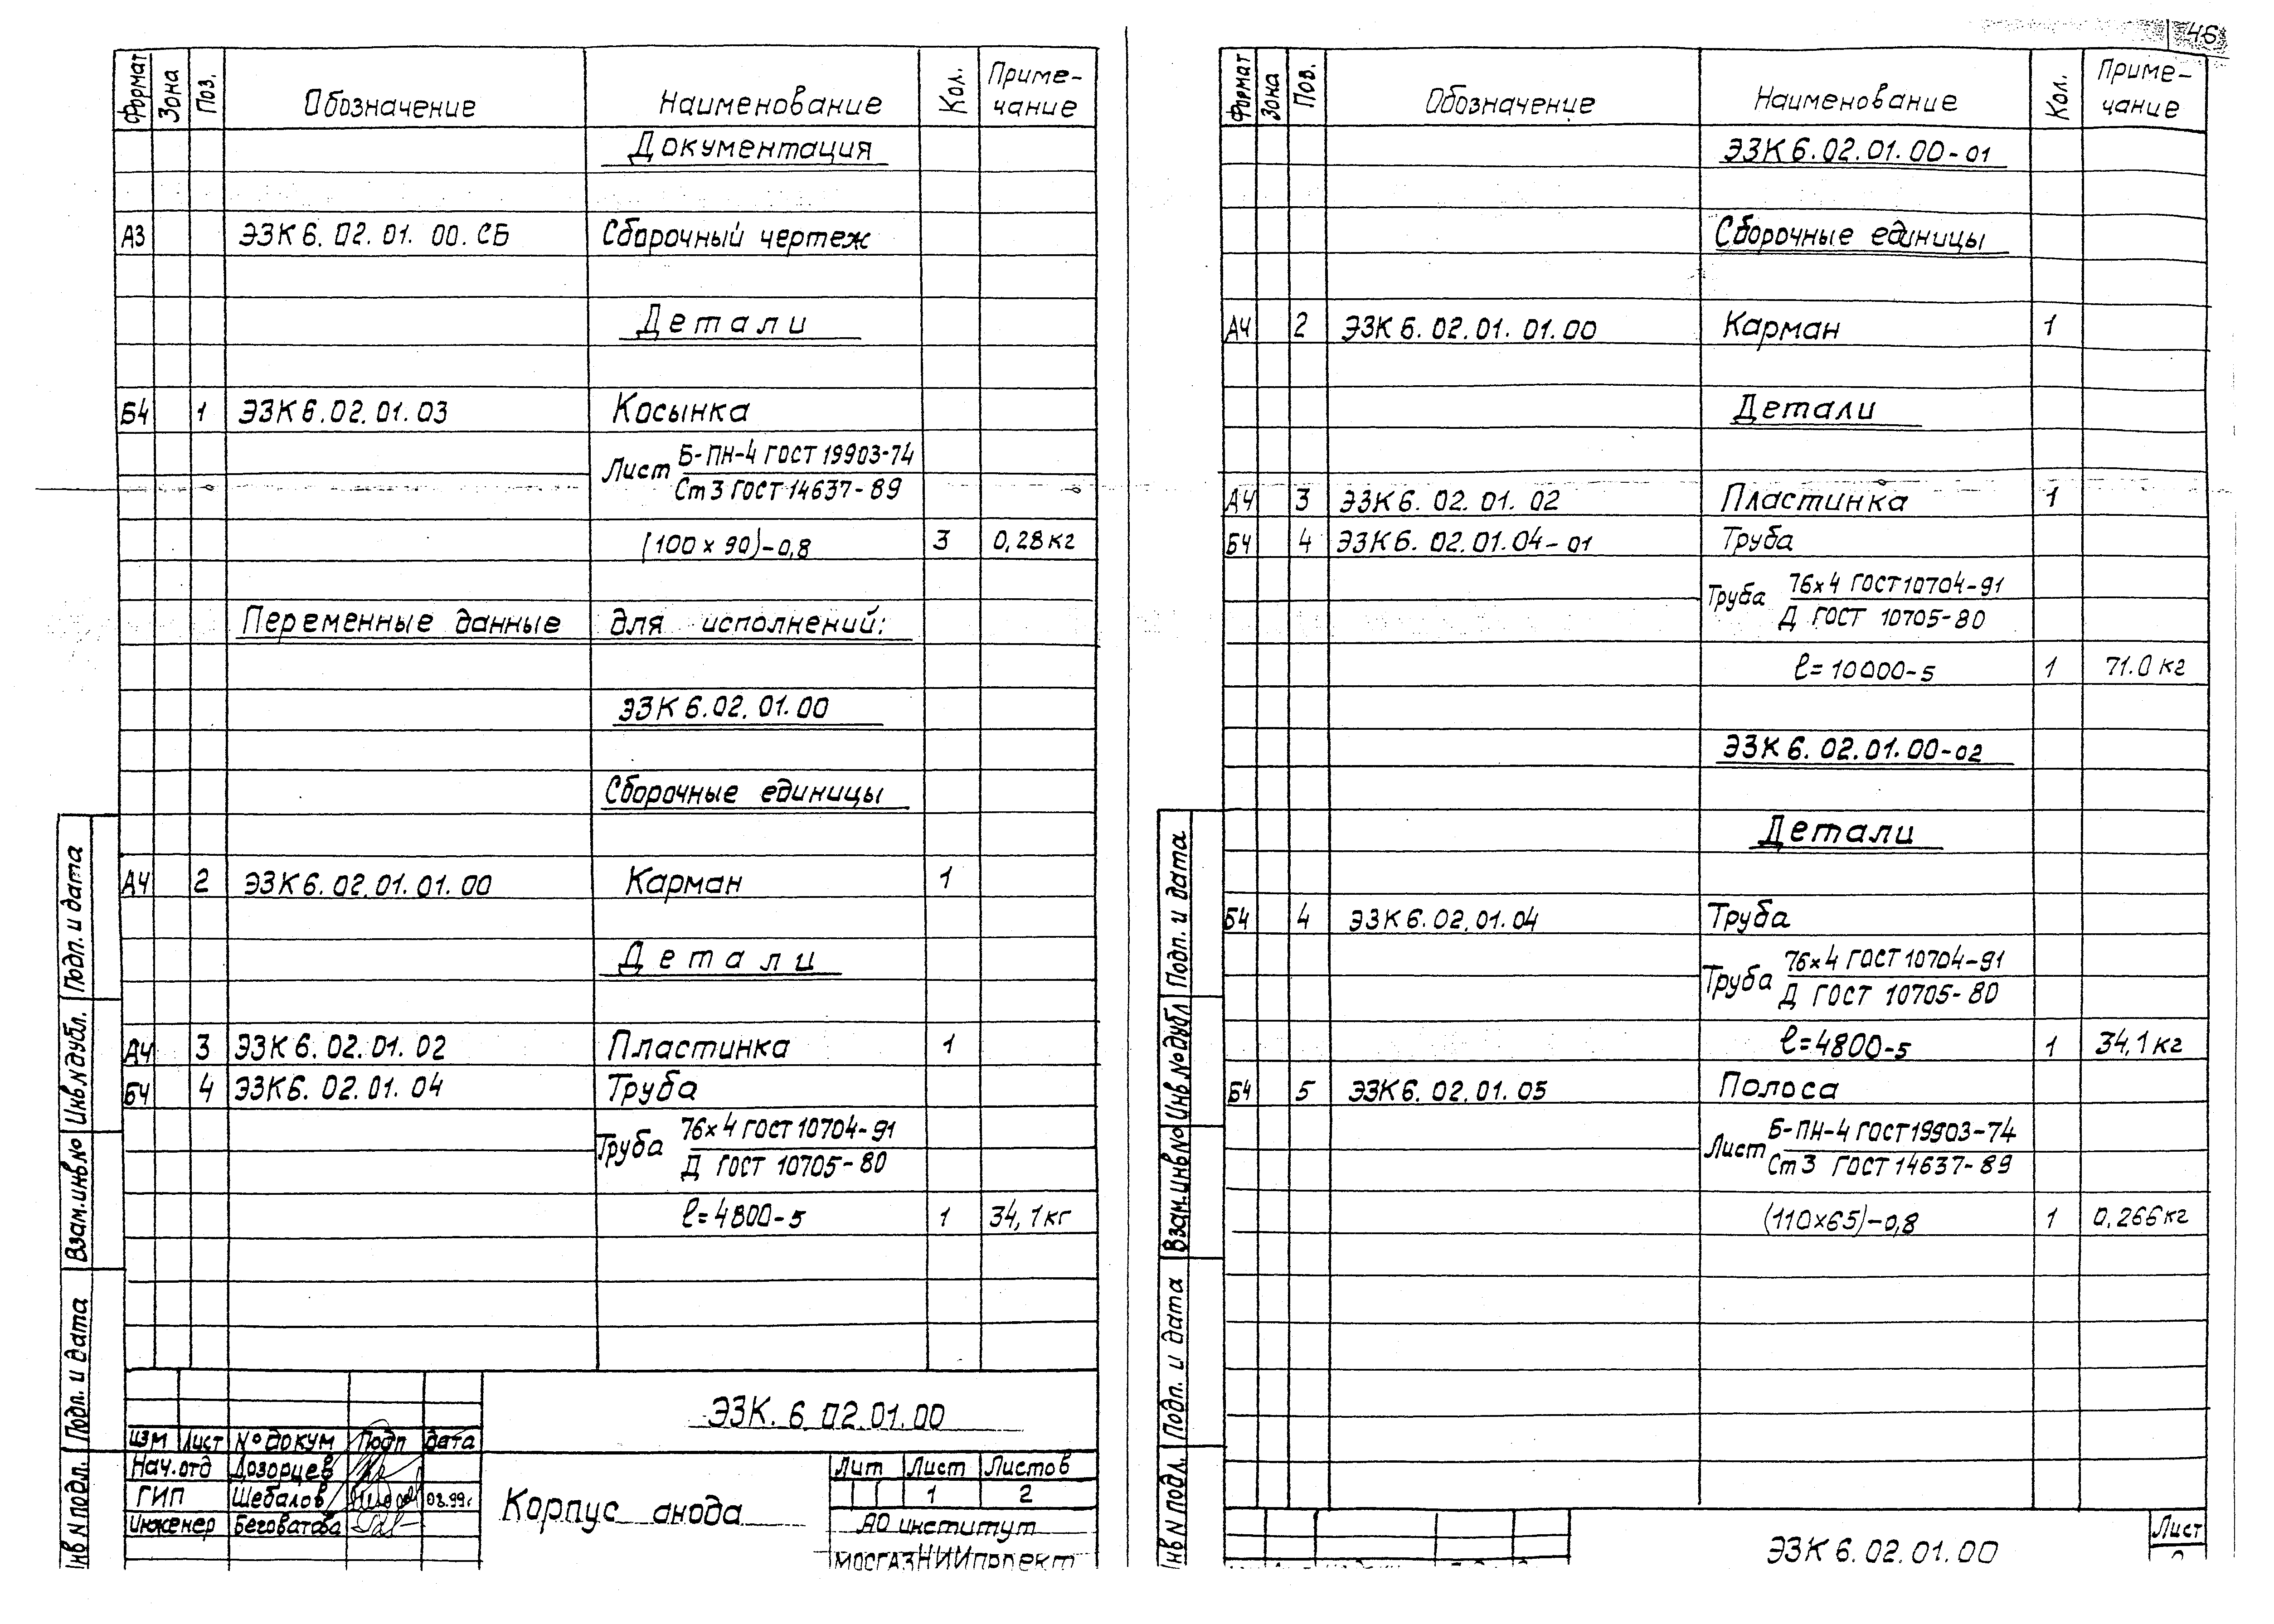 46
Формат Зона Поз. Обозначение Наименование Кол. Приме-
чание
Документация
А3 ЭЗК 6. 02. 01. 00. СБ Сборочный чертеж
Детали
Б4 1 ЭЗК 6. 02. 01. 03 Косынка
Лист Б-ПН-4 ГОСТ 19903-74
Ст 3 ГОСТ 14637-89
(100 х 90)-0,8 3 0,28 кг
Переменные данные для исполнений:
ЭЗК 6. 02. 01. 00
Сборочные единицы
А4 2 ЭЗК 6. 02. 01. 01. 00 Карман 1
Детали
А4 3 ЭЗК 6. 02. 01. 02 Пластинка 1
Б4 4 ЭЗК 6. 02. 01. 04 Труба
Труба 76х4 ГОСТ 10704-91
Д ГОСТ 10705-80
ℓ=4800-5 1 34,1 кг
ЭЗК. 6 02.01.00
изм Лист № докум Подп дата
Нач.отд Дозорцев
ГИП Шебалов 08.99г
Инженер Беговатова
Корпус анода
Лит Лист Листов
1 2
АО институт
МОСГАЗНИИпроект
Подп. и дата
Инв N дубл.
Взам.инв No
Подп. и дата
Инв N подл.
Формат Зона Поз. Обозначение Наименование Кол. Приме-
чание
ЭЗК 6. 02. 01. 00-01
Сборочные единицы
А4 2 ЭЗК 6. 02. 01. 01. 00 Карман 1
Детали
А4 3 ЭЗК 6. 02. 01. 02 Пластинка 1
Б4 4 ЭЗК 6. 02. 01. 04-01 Труба
Труба 76х4 ГОСТ 10704-91
Д ГОСТ 10705-80
ℓ=10000-5 1 71.0 кг
ЭЗК 6. 02. 01. 00-02
Детали
Б4 4 ЭЗК 6. 02. 01. 04 Труба
Труба 76х4 ГОСТ 10704-91
Д ГОСТ 10705-80
ℓ=4800-5 1 34,1 кг
Б4 5 ЭЗК 6. 02. 01. 05 Полоса
Лист Б-ПН-4 ГОСТ 19903-74
Ст 3 ГОСТ 14637-89
(110х65)-0,8 1 0,266 кг
ЭЗК 6. 02. 01. 00
Лист
Подп. и дата
Инв No дубл
Взам.инв No
Подп. и дата
Инв N подл.